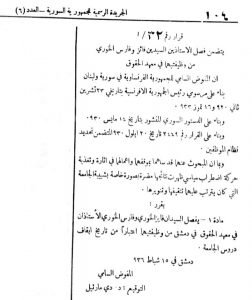 ١٠٤ الجريدة الرسمية للجمهورية السورية – العدد (٦)
قرار رقم ٣٢/١
يتضمن فصل الاستاذين السيدين فائز وفارس الخوري
من وظيفتيهما في معهد الحقوق
ان المفوض السامي للجمهورية الفرنساوية في سورية ولبنان
بناء على مرسومي رئيس الجمهورية الافرنسية بتاريخي ٢٣ تشرين
ثاني ٩٢٠ و١٦ تموز ٩٣٣
وبناء على الدستور السوري المنشور بتاريخ ١٤ مايس ٩٣٠
وبناء على القرار رقم ٢٤٤٩ تاريخ ٢٠ ايلول ٩٣٠ المتضمن تحديد
نظام الموظفين
وبما ان المبحوث عنهما قد ساهما بموقفهما واعمالهما في اثارة وتغذية
حركة اضطراب سياسي ظهرت نتائجها مضرة بصورة خاصة بشبيبة الجامعة
التي كان يترتب عليهما تثقيفها وتنويرها
يقرر :
مادة ١ – يفصل السيدان فايز الخوري وفارس الخوري الاستاذان
في معهد الحقوق في دمشق من وظيفتيهما اعتباراً من تاريخ ايقاف
دروس الجامعة
دمشق في ١٥ شباط ٩٣٦
المفوض السامي
التوقيع : د. دي مارتيل